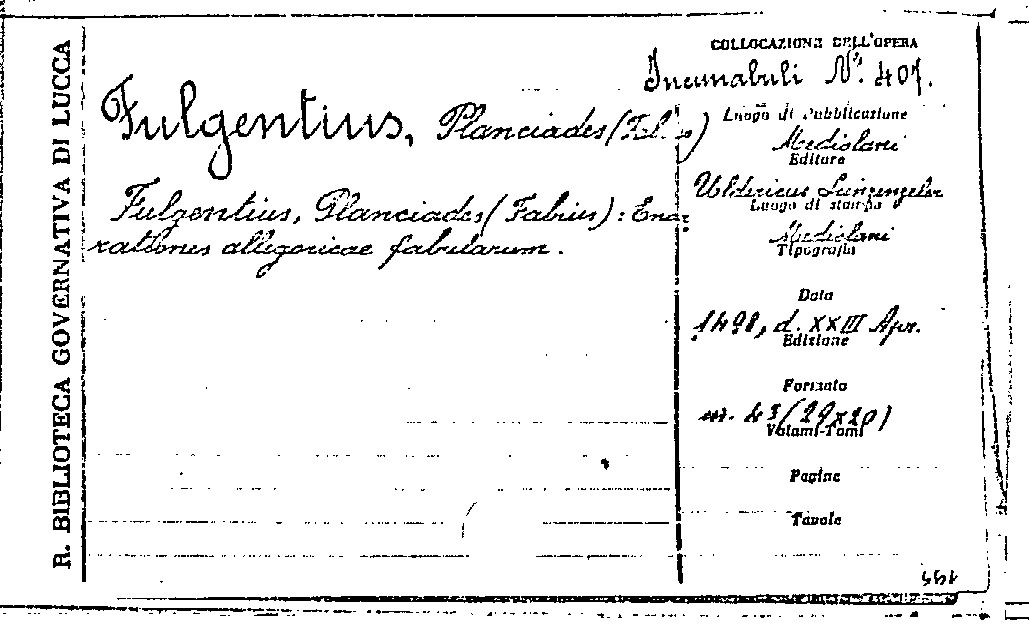 R. BIBLIOTECA GOVERNATIVA DI LUCCA
Fulgentius, Planciades (
Fulgentius, Planciades (Fabius): Enar
rationes allegoricae fabularum.
COLLOCAZIONE DELL'OPERA
Incunabuli Nº. 407.
Luogo di Pubblicazione
Mediolani
Editore
Uldericus Scinzenzeler
Luogo di stampa
Mediolani
Tipografia
Data
1498, d. XXIII Apr.
Edizione
Formato
43 (29x20)
Volumi-Tomi
Pagine
Tavole